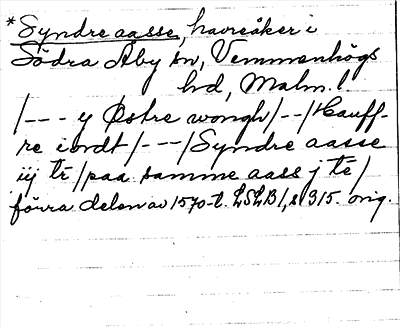 * Syndre aasse, havreåker i
Södra Åby sn, Vemmenhögs
hd, Malm. l.
/--- y Østre wongh/--/Hauff-
re iordt/---/Syndre aasse
iij tr̄/paa samme aass j te/
förra delen av 1570-t. LSLB 1, s 315. orig.